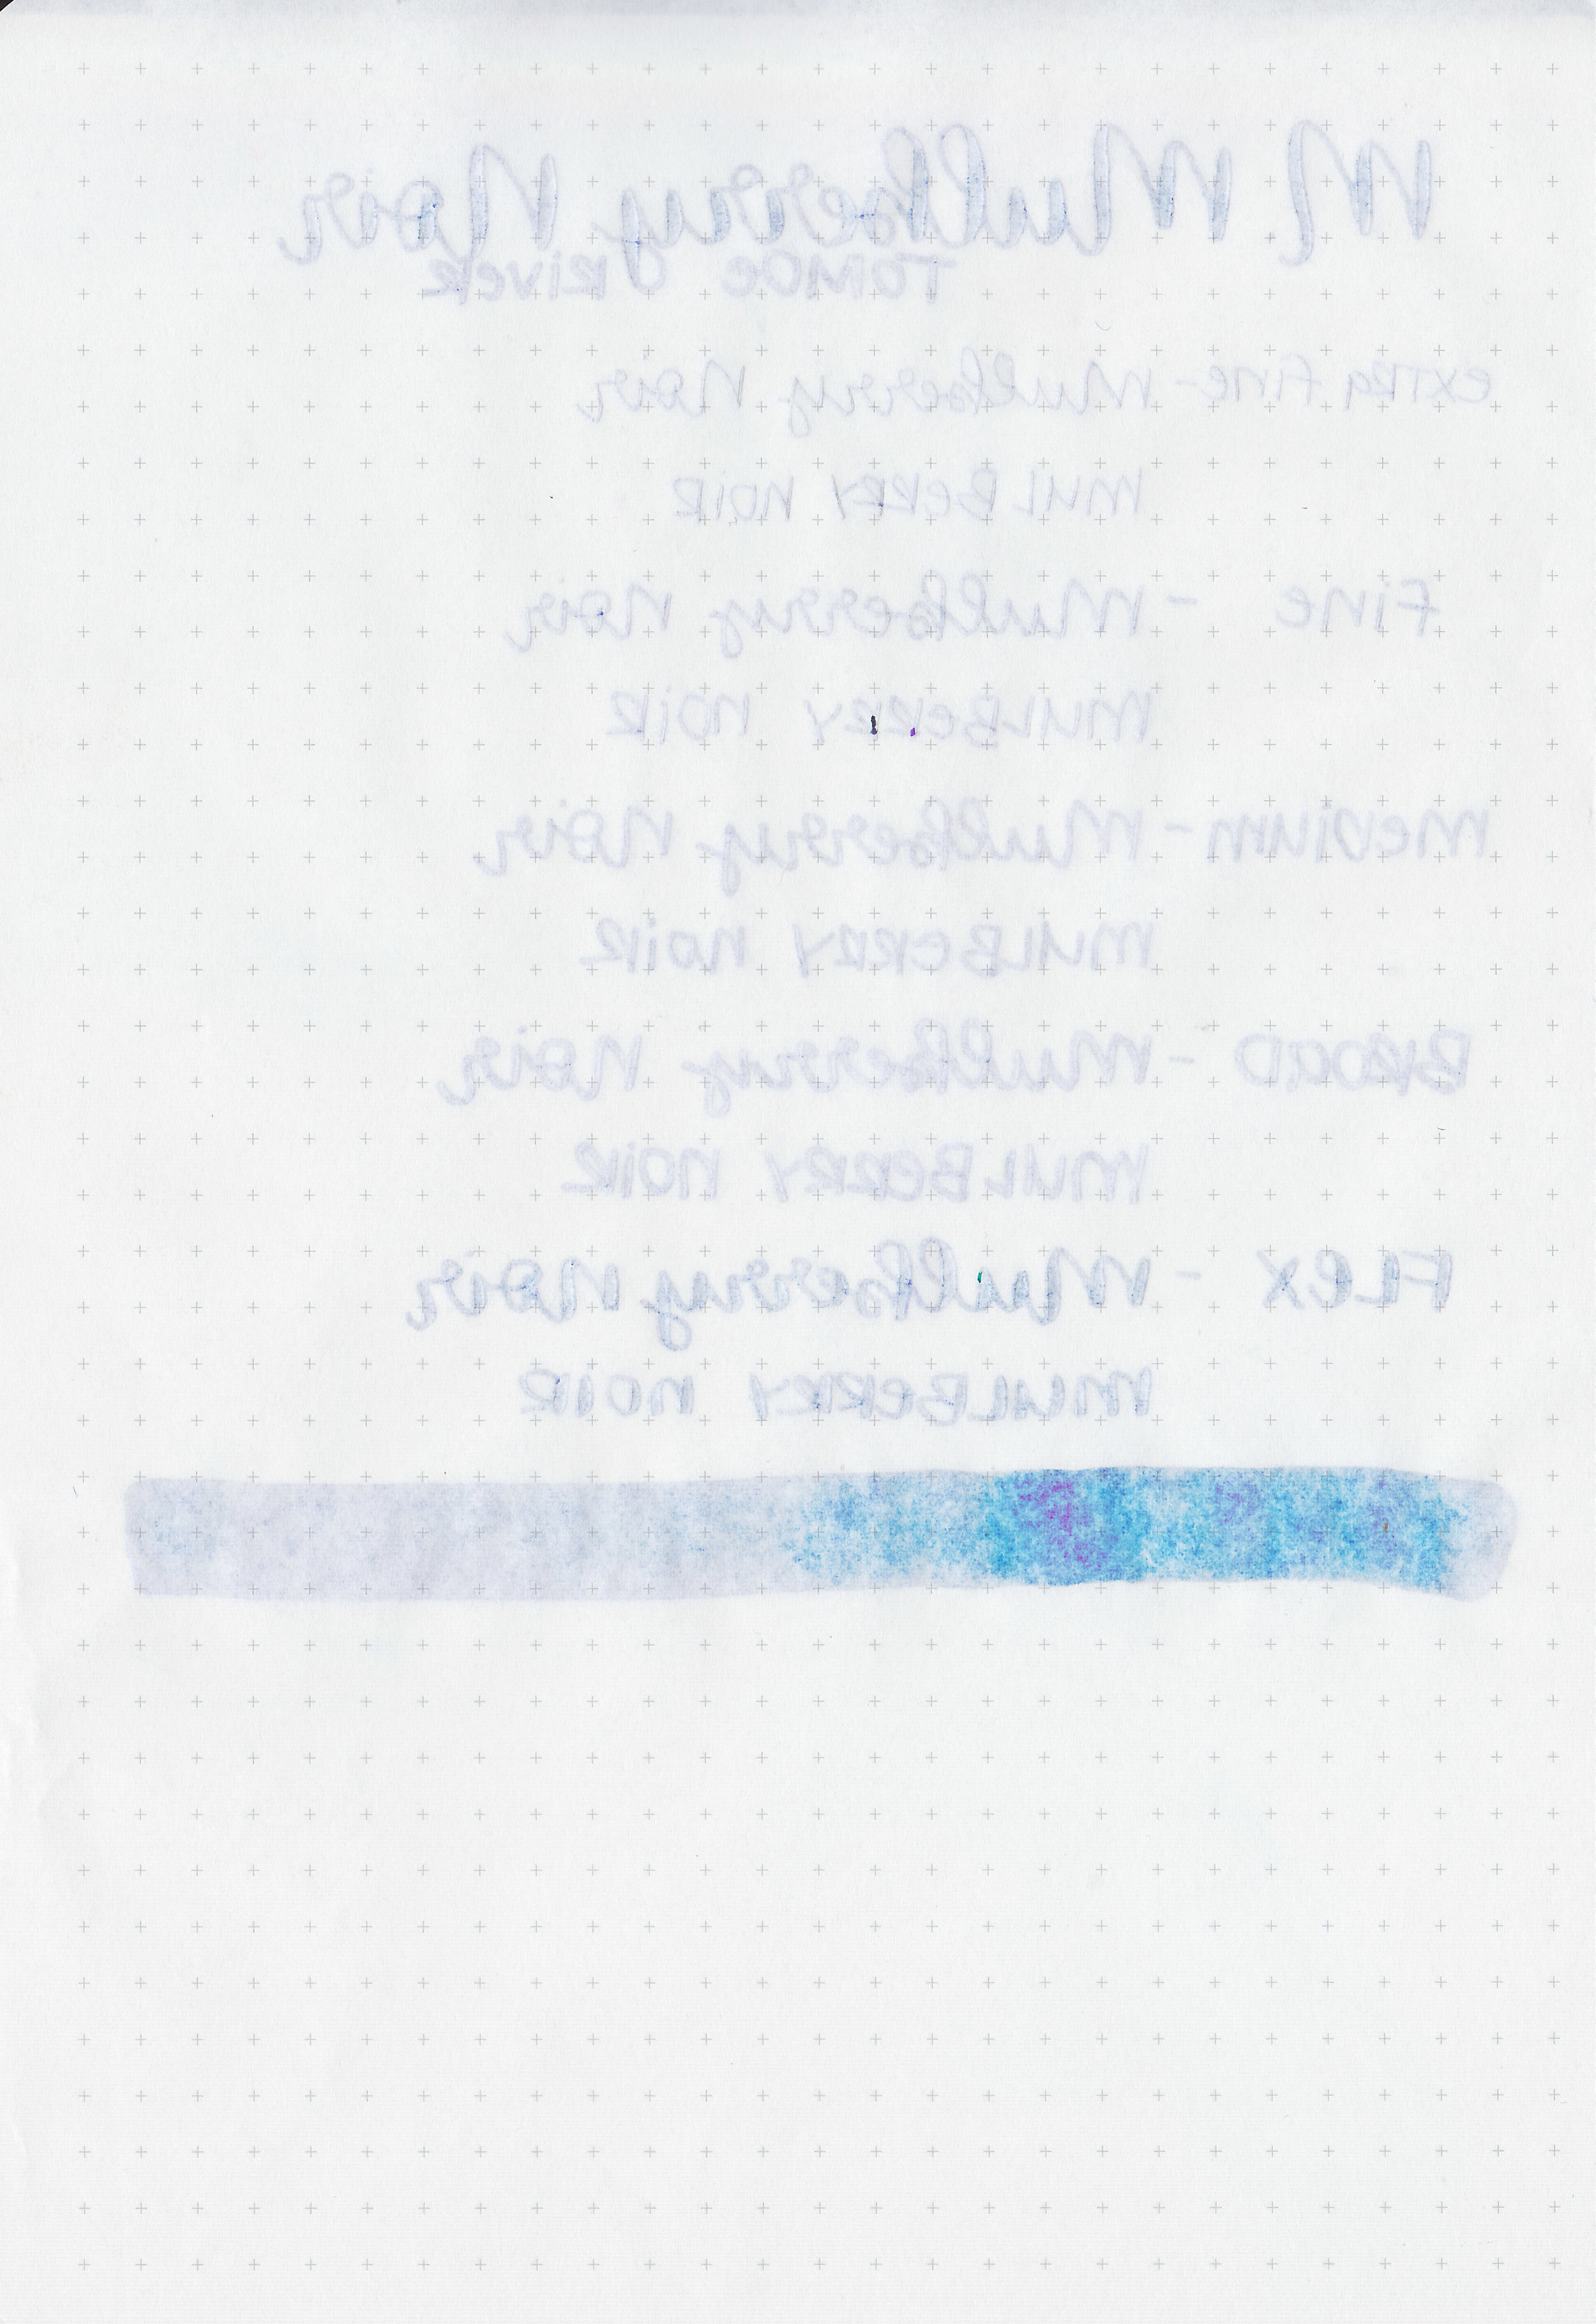 M. Mulberry Noir
TOMOE RIVER
EXTRA FINE - Mulberry Noir
MULBERRY NOIR
FINE - Mulberry Noir
MULBERRY NOIR
MEDIUM - Mulberry Noir
MULBERRY NOIR
BROAD - Mulberry Noir
MULBERRY NOIR
FLEX - Mulberry Noir
MULBERRY NOIR